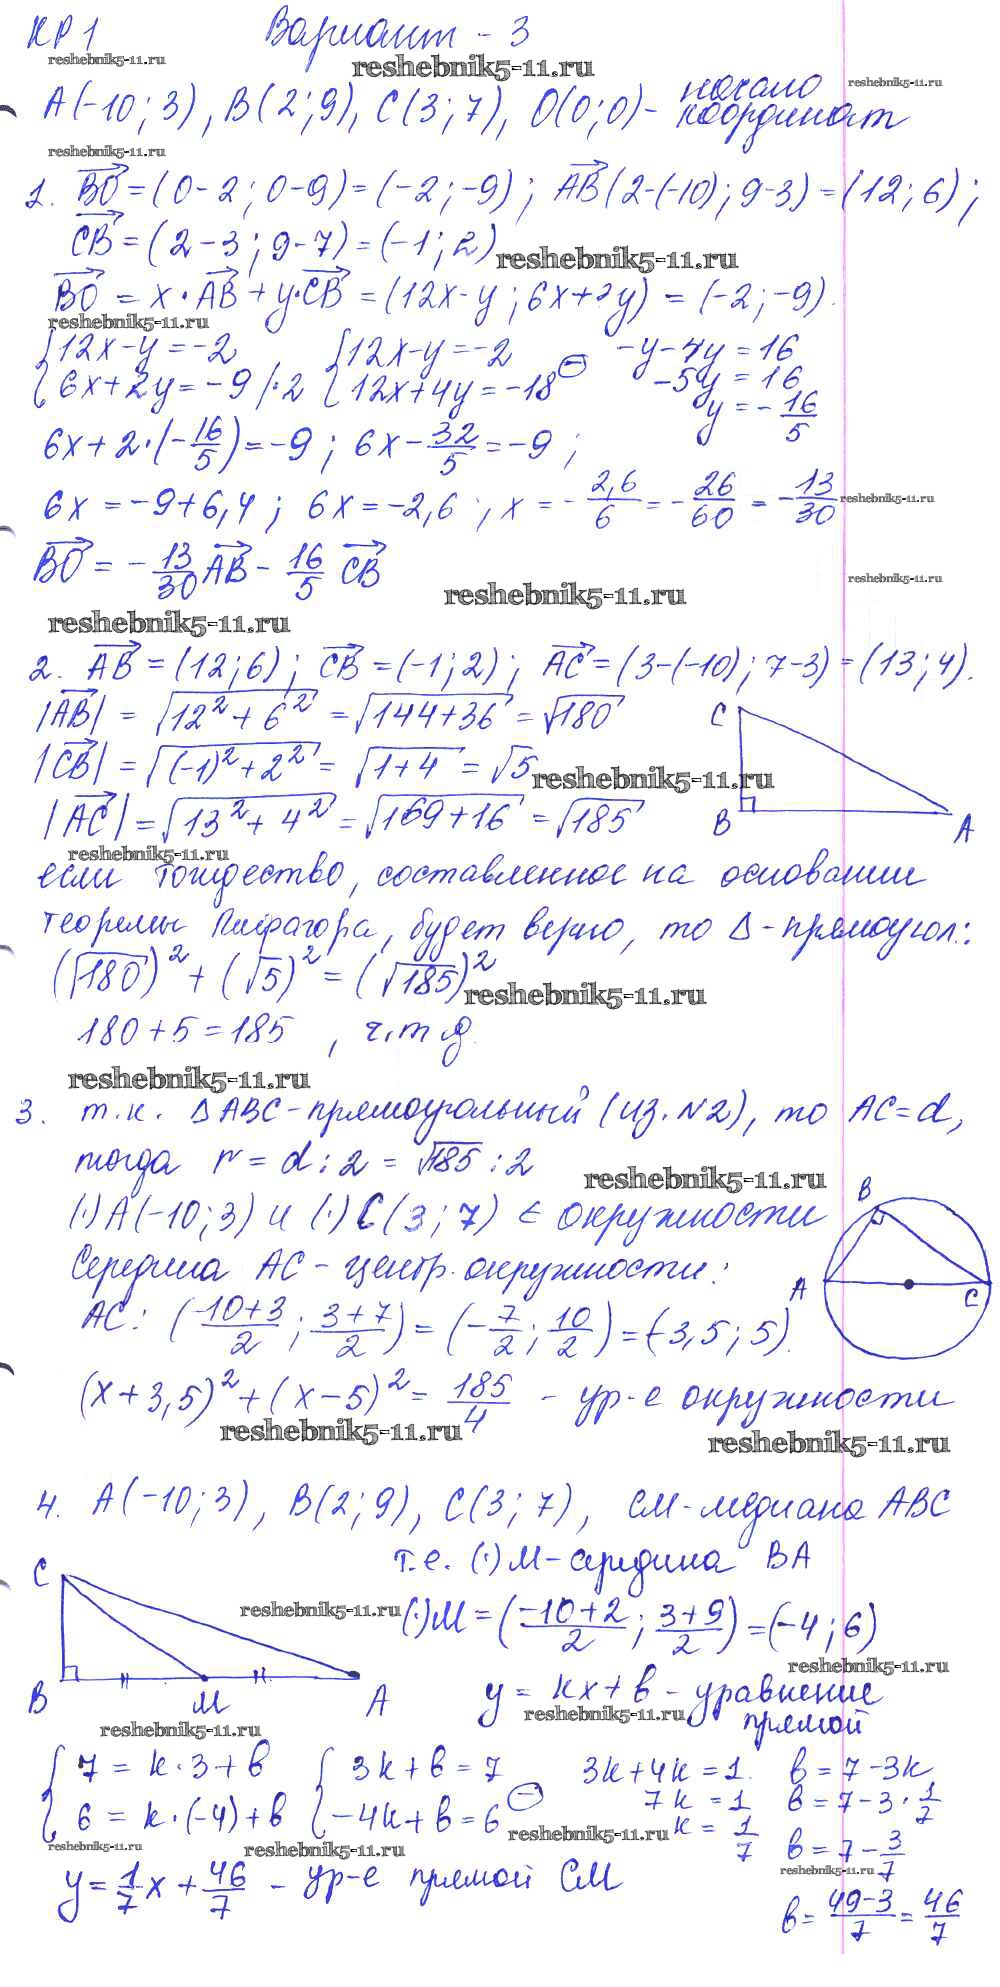 КР 1 Вариант - 3
reshebnik5-11.ru reshebnik5-11.ru reshebnik5-11.ru
A(-10; 3), B(2; 9), C(3; 7), O(0; 0) - начало координат
reshebnik5-11.ru
1. BO = (0-2; 0-9) = (-2; -9); AB(2-(-10); 9-3) = (12; 6);
CB = (2-3; 9-7) = (-1; 2)
reshebnik5-11.ru
BO = x·AB + y·CB = (12x-y; 6x+2y) = (-2; -9).
reshebnik5-11.ru
{12x-y=-2 {12x-y=-2 -y-4y=16
{6x+2y=-9 |·2 {12x+4y=-18 (-) -5y=16
y=-16/5
6x+2·(-16/5)=-9; 6x-32/5=-9;
6x=-9+6,4; 6x=-2,6; x=-2,6/6=-26/60=-13/30
reshebnik5-11.ru
BO = -13/30 AB - 16/5 CB
reshebnik5-11.ru reshebnik5-11.ru
reshebnik5-11.ru
2. AB = (12; 6); CB = (-1; 2); AC = (3-(-10); 7-3) = (13; 4).
|AB| = √(12²+6²) = √(144+36) = √180
|CB| = √((-1)²+2²) = √(1+4) = √5
reshebnik5-11.ru
|AC| = √(13²+4²) = √(169+16) = √185
C
B
A
reshebnik5-11.ru
если тождество, составленное на основании
теоремы Пифагора, будет верно, то Δ-прямоугол.:
(√180)² + (√5)² = (√185)²
reshebnik5-11.ru
180+5=185, ч.т.д.
reshebnik5-11.ru
3. т.к. ΔABC-прямоугольный (из.N2), то AC=d,
тогда r = d:2 = √185:2
reshebnik5-11.ru
(·)A(-10; 3) и (·)C(3; 7) ∈ окружности
Середина AC - центр. окружности:
B
A
C
AC: (-10+3/2; 3+7/2) = (-7/2; 10/2) = (-3,5; 5).
(x+3,5)²+(x-5)² = 185/4 - ур-е окружности
reshebnik5-11.ru
reshebnik5-11.ru
4. A(-10; 3), B(2; 9), C(3; 7), CM-медиана ABC
т.е. (·)M-середина BA
C
reshebnik5-11.ru
(·)M = (-10+2/2; 3+9/2) = (-4; 6)
reshebnik5-11.ru
B M A
y = kx+b - уравнение прямой
reshebnik5-11.ru
reshebnik5-11.ru
{7=k·3+b {3k+b=7 3k+4k=1. b=7-3k
{6=k·(-4)+b {-4k+b=6 (-) 7k=1 b=7-3·1/7
k=1/7 b=7-3/7
reshebnik5-11.ru reshebnik5-11.ru reshebnik5-11.ru
reshebnik5-11.ru
y=1/7x+46/7 - ур-е прямой CM
b=49-3/7=46/7